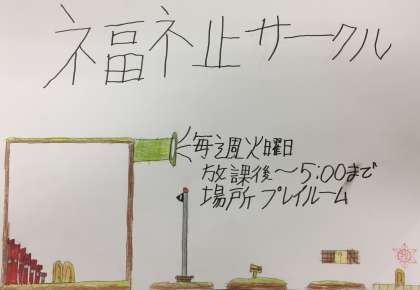 福祉サークル
毎週火曜日
放課後～5:00まで
場所 プレイルーム